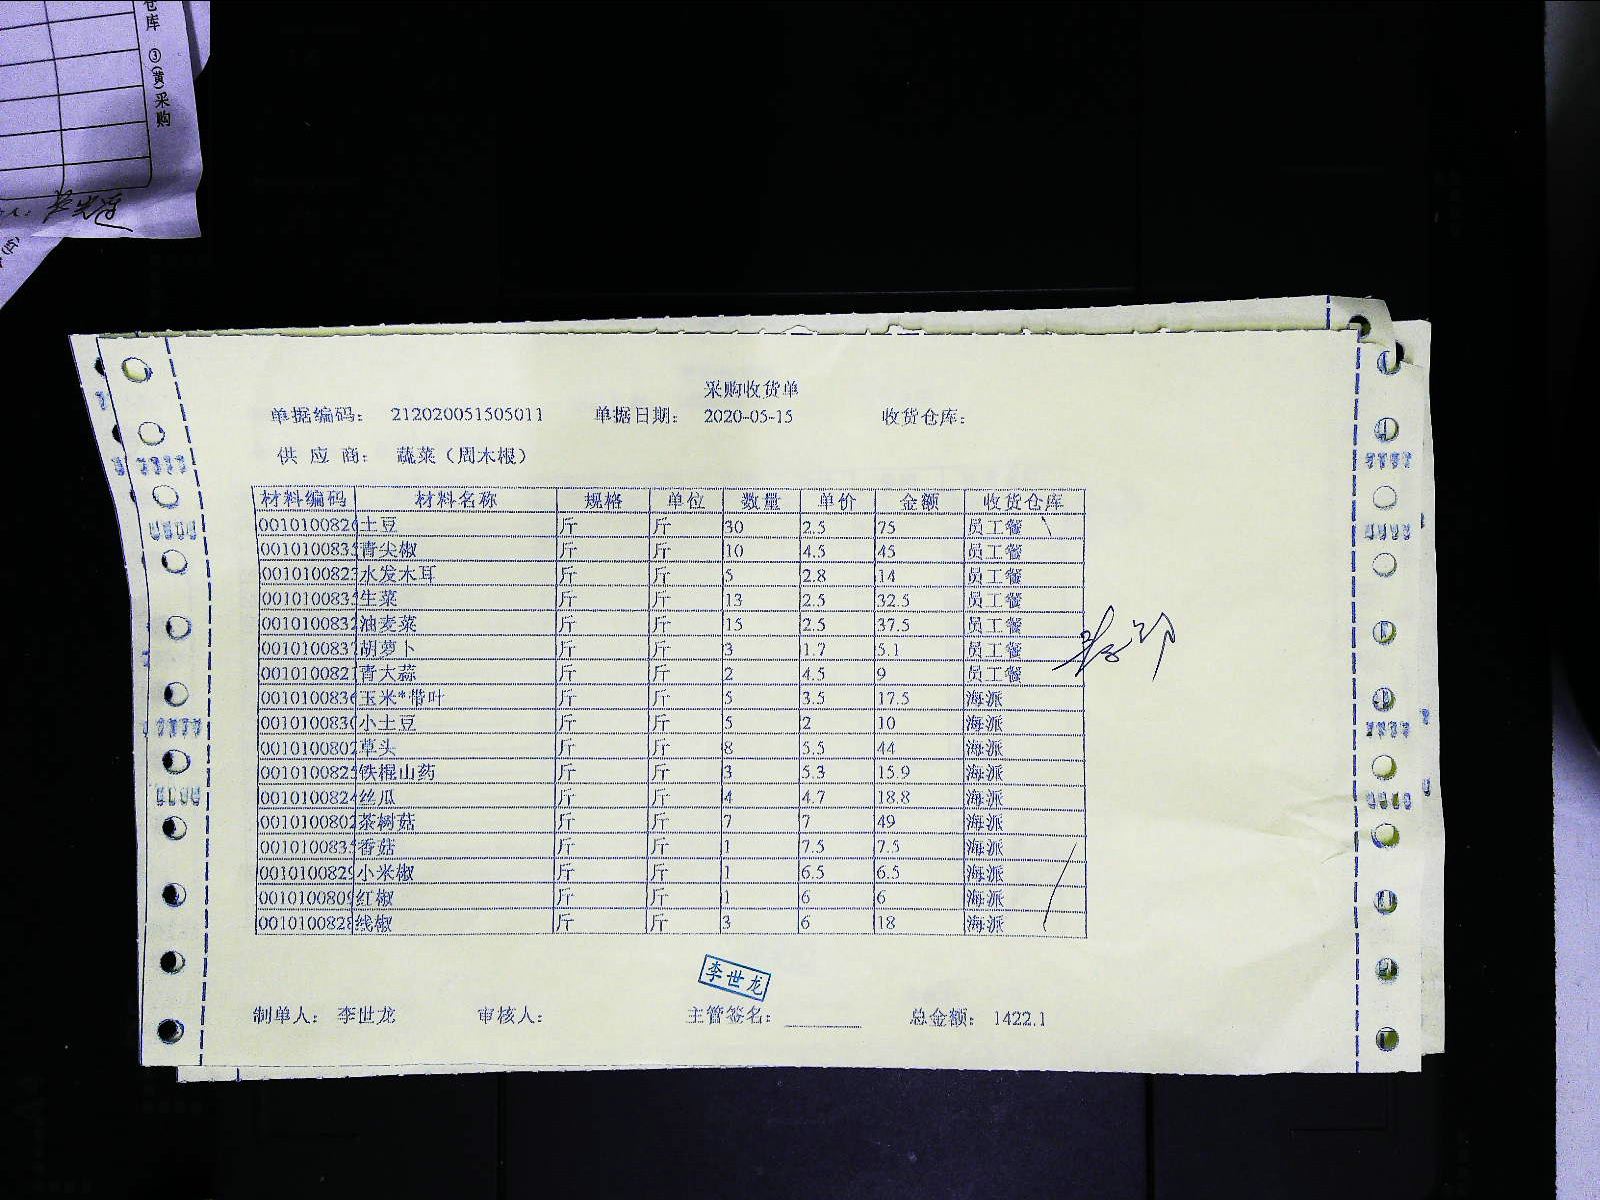 仓库 ③(黄)采购
采购收货单
单据编码: 212020051505011 单据日期: 2020-05-15 收货仓库:
供 应 商: 蔬菜（周木根）
材料编码 材料名称 规格 单位 数量 单价 金额 收货仓库
0010100826 土豆 斤 斤 30 2.5 75 员工餐
001010083 青尖椒 斤 斤 10 4.5 45 员工餐
001010082 水发木耳 斤 斤 5 2.8 14 员工餐
001010083 生菜 斤 斤 13 2.5 32.5 员工餐
0010100832 油麦菜 斤 斤 15 2.5 37.5 员工餐
001010083 胡萝卜 斤 斤 3 1.7 5.1 员工餐
001010082 青大蒜 斤 斤 2 4.5 9 员工餐
0010100836 玉米*带叶 斤 斤 5 3.5 17.5 海派
001010083 小土豆 斤 斤 5 2 10 海派
0010100802 草头 斤 斤 8 5.5 44 海派
001010082 铁棍山药 斤 斤 3 5.3 15.9 海派
0010100824 丝瓜 斤 斤 4 4.7 18.8 海派
0010100802 茶树菇 斤 斤 7 7 49 海派
001010083 香菇 斤 斤 1 7.5 7.5 海派
0010100829 小米椒 斤 斤 1 6.5 6.5 海派
0010100809 红椒 斤 斤 1 6 6 海派
0010100828 线椒 斤 斤 3 6 18 海派
李世龙
制单人: 李世龙 审核人: 主管签名: 总金额: 1422.1